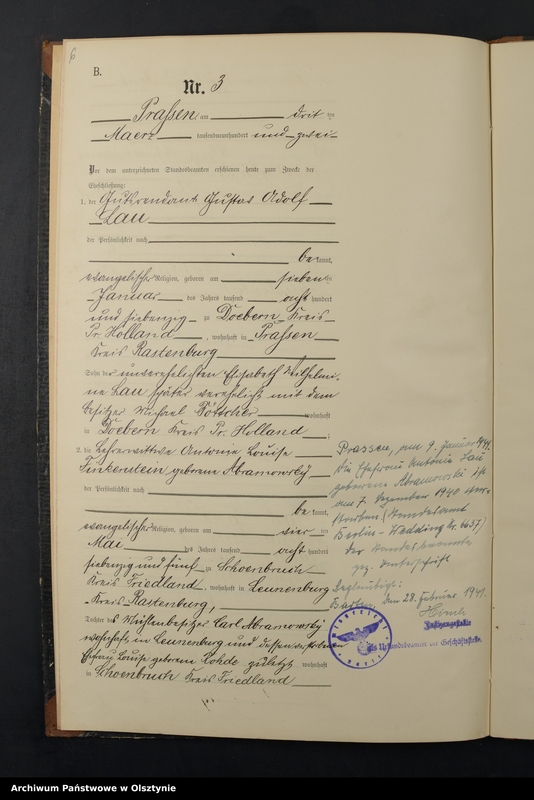 6
B.
Nr. 3
Prassen am drit ten
Maerz tausendneunhundert und zwei
Vor dem unterzeichneten Standesbeamten erschienen heute zum Zwecke der
Eheschließung:
1. der Gutsrendant Gustav Adolf
Lau
der Persönlichkeit nach
be kannt,
evangelischer Religion, geboren am sieben ten
Januar des Jahres tausend acht hundert
und siebenzig zu Doebern Kreis
Pr. Holland, wohnhaft in Prassen
Kreis Rastenburg
Sohn der unverehelichten Elisabeth Wilhelmi-
ne Lau später verehelicht mit dem
Besitzer Michael wohnhaft
in Doebern Kreis Pr. Holland;
2. die Lehrerwittwe Antonie Louise
Finkenstein geborene Abramowsky
der Persönlichkeit nach
be kannt,
evangelischer Religion, geboren am vier ten
Mai des Jahres tausend acht hundert
siebenzig und fünf zu Schoenbruch
Kreis Friedland, wohnhaft in Leunenburg
Kreis Rastenburg,
Tochter des Mühlenbesitzer Carl Abramowsky
wohnhaft in Leunenburg und dessen verstorbenen
Ehefrau Louise geborene Rohde zuletzt wohnhaft
in Schoenbruch Kreis Friedland
Prassen, am 9. Januar 1941.
Die Ehefrau Antonie Lau
geborene Abramowski ist
am 7. Dezember 1940 ver-
storben (Standesamt
Berlin-Wedding Nr. 6637)
Der Standesbeamte
gez. Unterschrift
Beglaubigt:
Barten, den 28. Februar 1941.
Justizangestellte
als Urkundsbeamter der Geschäftsstelle.
Archiwum Państwowe w Olsztynie